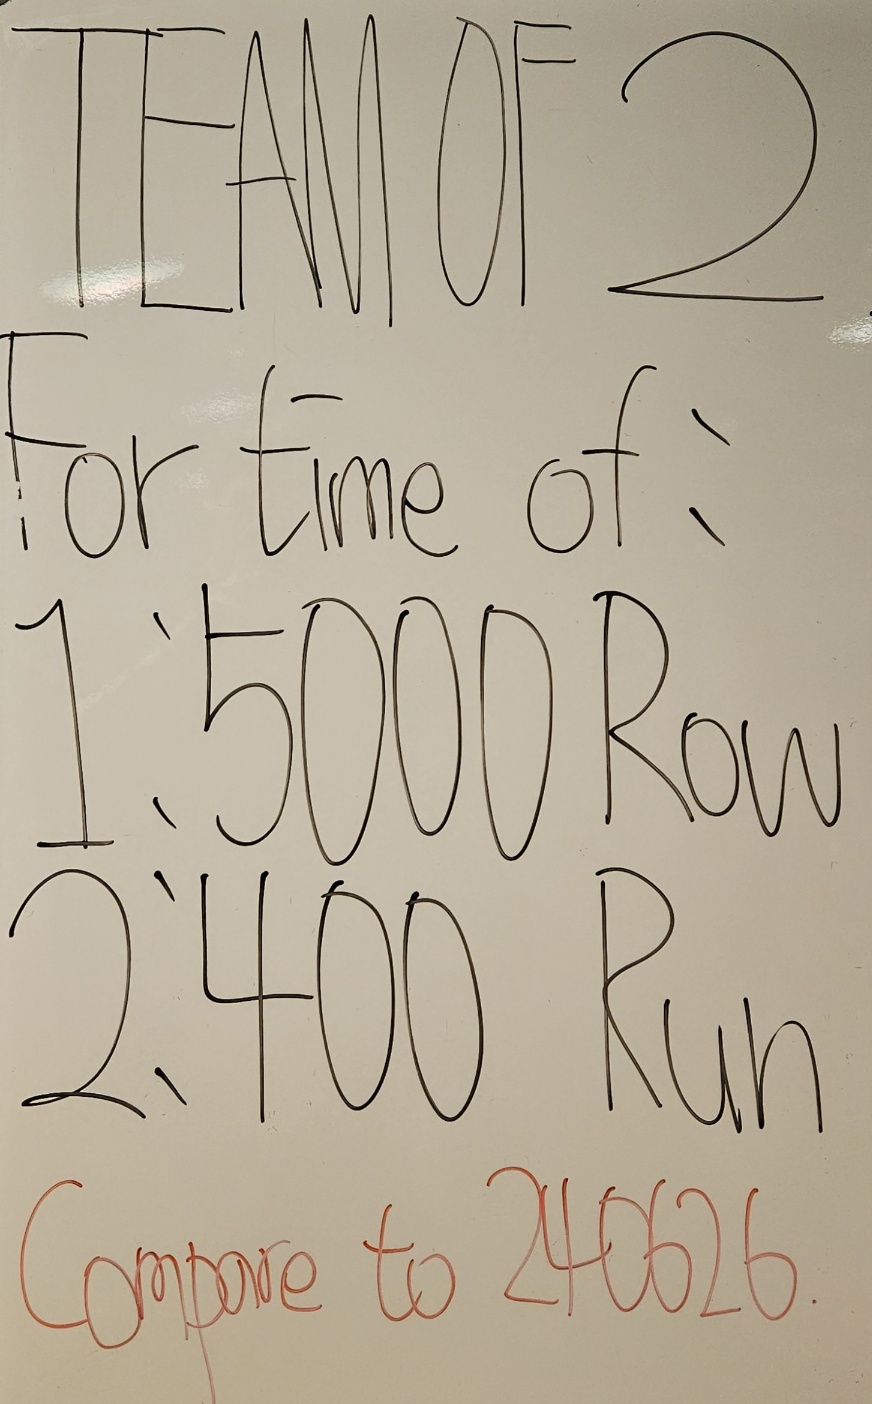 TEAM OF 2
For time of:
1:5000 Row
2:400 Run
Compare to 240626.